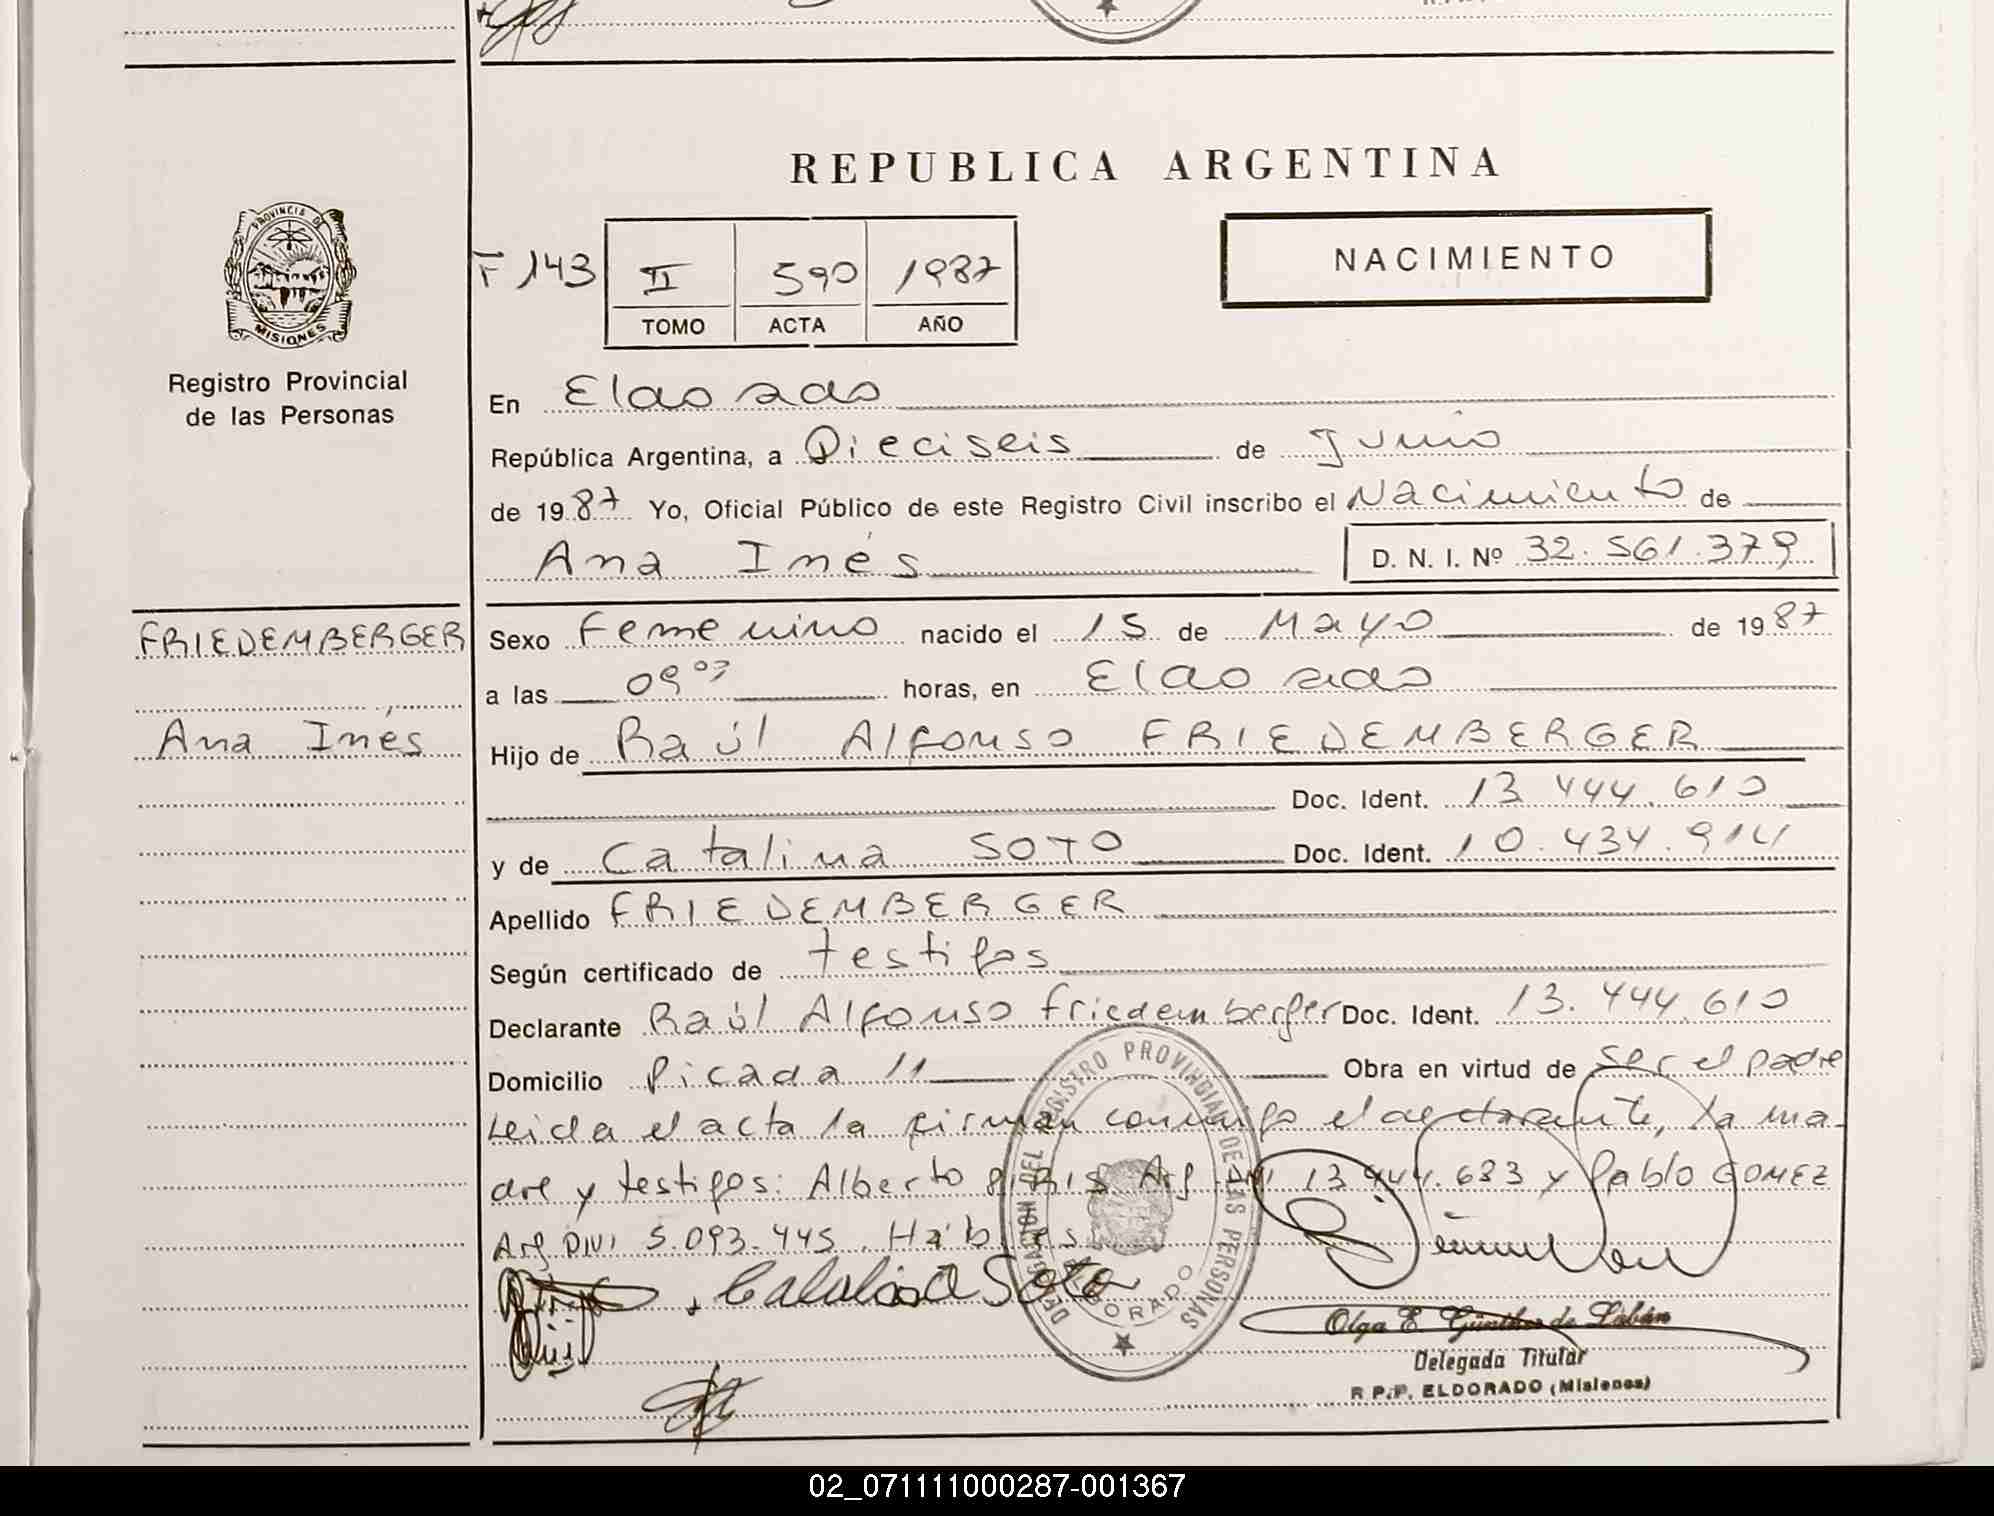 REPUBLICA ARGENTINA
PROVINCIA DE
MISIONES
Registro Provincial
de las Personas
F 143 II 590 1987
TOMO ACTA AÑO
NACIMIENTO
En Eldorado
República Argentina, a Dieciseis de Junio
de 1987 Yo, Oficial Público de este Registro Civil inscribo el Nacimiento de
Ana Inés D. N. I. Nº 32.561.379
FRIEDEMBERGER
Ana Inés
Sexo Femenino nacido el 15 de Mayo de 1987
a las 09 horas, en Eldorado
Hijo de Raúl Alfonso FRIEDEMBERGER
Doc. Ident. 13.444.610
y de Catalina SOTO Doc. Ident. 10.434.914
Apellido FRIEDEMBERGER
Según certificado de testigos
Declarante Raúl Alfonso Friedemberger Doc. Ident. 13.444.610
Domicilio Picada 11 Obra en virtud de Ser el padre
Leida el acta la firman conmigo el declarante, la ma-
dre y testigos: Alberto Arg DNI 13.444.633 y Pablo GOMEZ
Arg DNI 5.093.445. Hábiles
Catalina Soto
DELEGACION DEL REGISTRO PROVINCIAL DE LAS PERSONAS
ELDORADO
Olga E. Günther de Labán
Delegada Titular
R.P.P. ELDORADO (Misiones)
02_071111000287-001367